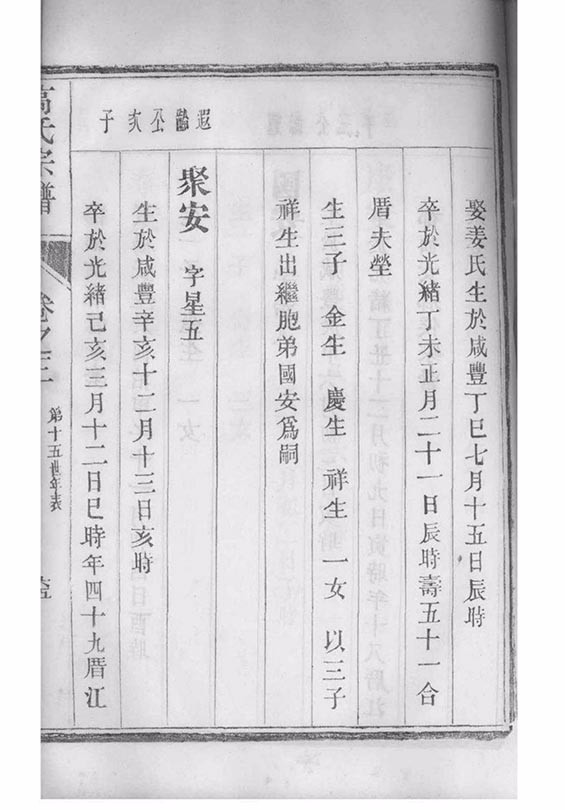 娶姜氏生於咸豐丁巳七月十五日辰時
卒於光緒丁未正月二十一日辰時壽五十一合
厝夫塋
生三子 金生 慶生 祥生 一女 以三子
祥生出繼胞弟國安爲嗣
遐齡公亥子
聚安 字星五
生於咸豐辛亥十二月十三日亥時
卒於光緒己亥三月十二日巳時年四十九厝江
高氏宗譜
卷之
第十五世年表